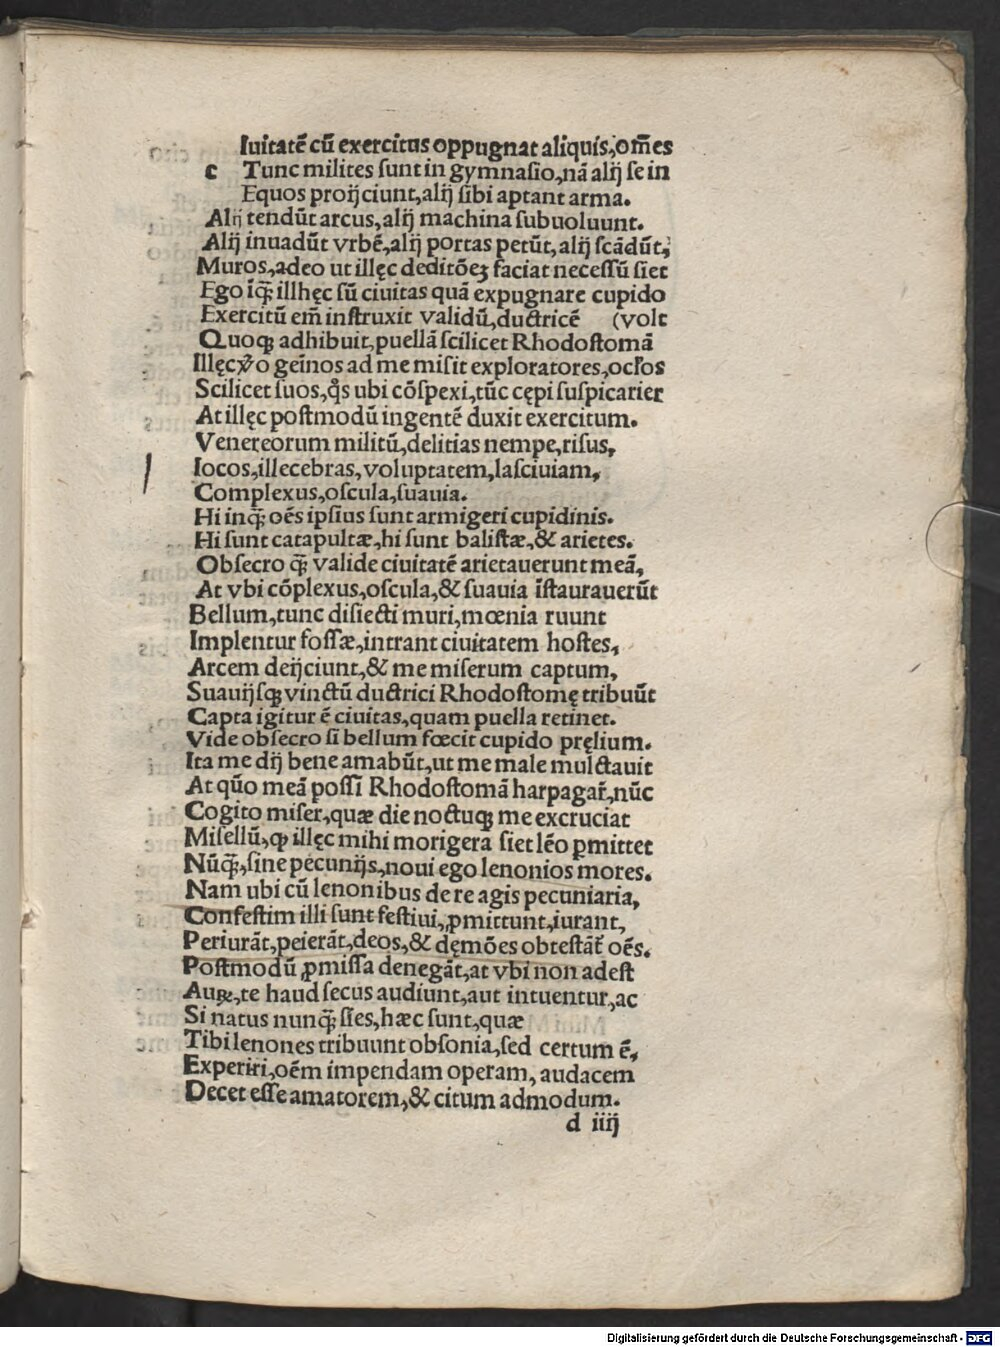 Iuitatē cū exercitus oppugnat aliquis, om̄es
c Tunc milites sunt in gymnasio, nā alij se in
Equos proijciunt, alij sibi aptant arma.
Alij tendūt arcus, alij machina subuoluunt.
Alij inuadūt vrbē, alij portas petūt, alij scādūt,
Muros, adeo ut illęc deditōeꝫ faciat necessū siet
Ego īq̄; illhęc sū ciuitas quā expugnare cupido
Exercitū em̄ instruxit validū, ductricē (volt
Quoqꝫ adhibuit, puellā scilicet Rhodostomā
Illęc ꝟo geīnos ad me misit exploratores, ocl'os
Scilicet suos, q̊s ubi cōspexi, tūc cępi suspicarier
At illęc postmodū ingentē duxit exercitum.
Venereorum militū, delitias nempe, risus,
Iocos, illecebras, voluptatem, lasciuiam,
Complexus, oscula, suauia.
Hi inq̄; oēs ipsius sunt armigeri cupidinis.
Hi sunt catapultæ, hi sunt balistæ, & arietes.
Obsecro q̄; valide ciuitatē arietauerunt meā,
At vbi cōplexus, oscula, & suauia īstaurauerūt
Bellum, tunc disiecti muri, mœnia ruunt
Implentur fossæ, intrant ciuitatem hostes,
Arcem deijciunt, & me miserum captum,
Suauijsqꝫ vinctū ductrici Rhodostomę tribuūt
Capta igitur ē ciuitas, quam puella retinet.
Vide obsecro si bellum fœcit cupido pręlium.
Ita me dij bene amabūt, ut me male mulctauit
At qūo meā possī Rhodostomā harpagar̄, nūc
Cogito miser, quæ die noctuqꝫ me excruciat
Misellū, ꝙ illęc mihi morigera siet lēo ꝑmittet
Nūq̄;, sine pecunijs, noui ego lenonios mores.
Nam ubi cū lenonibus de re agis pecuniaria,
Confestim illi sunt festiui, ꝓmittunt, iurant,
Periurāt, peierāt, deos, & dęmōes obtestāt̄ oēs.
Postmodū ꝓmissa denegāt, at vbi non adest
Auꝝ, te haud secus audiunt, aut intuentur, ac
Si natus nunq̄; sīes, hæc sunt, quæ
Tibi lenones tribuunt obsonia, sed certum ē,
Experiri, oēm impendam operam, audacem
Decet esse amatorem, & citum admodum.
d iiij
Digitalisierung gefördert durch die Deutsche Forschungsgemeinschaft - DFG